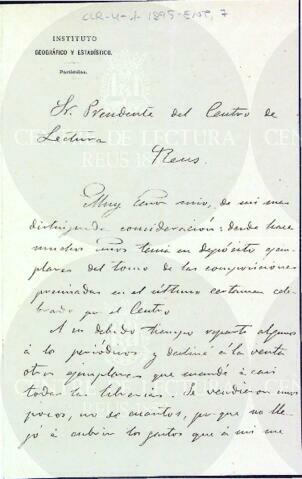 CLR-U-1-1895-Ent, 7
INSTITUTO
GEOGRÁFICO Y ESTADÍSTICO.
Particular.
Sr. Presidente del Centro de
Lectura
Reus.
Muy Señor mio, de mi mas
distinguida consideración: desde hace
muchos años tenia en depósito ejem-
plares del tomo de las composiciones
premiadas en el último certamen cele-
brado por el Centro
A su debido tiempo repartí algunos
á los periódicos, y destiné á la venta
otros ejemplares que mandé á casi
todas las librerias. Se vendieron unos
pocos, no se cuantos, por que no lle-
gó a cubrir los gastos que á mi me
CENTRE DE LECTURA
REUS